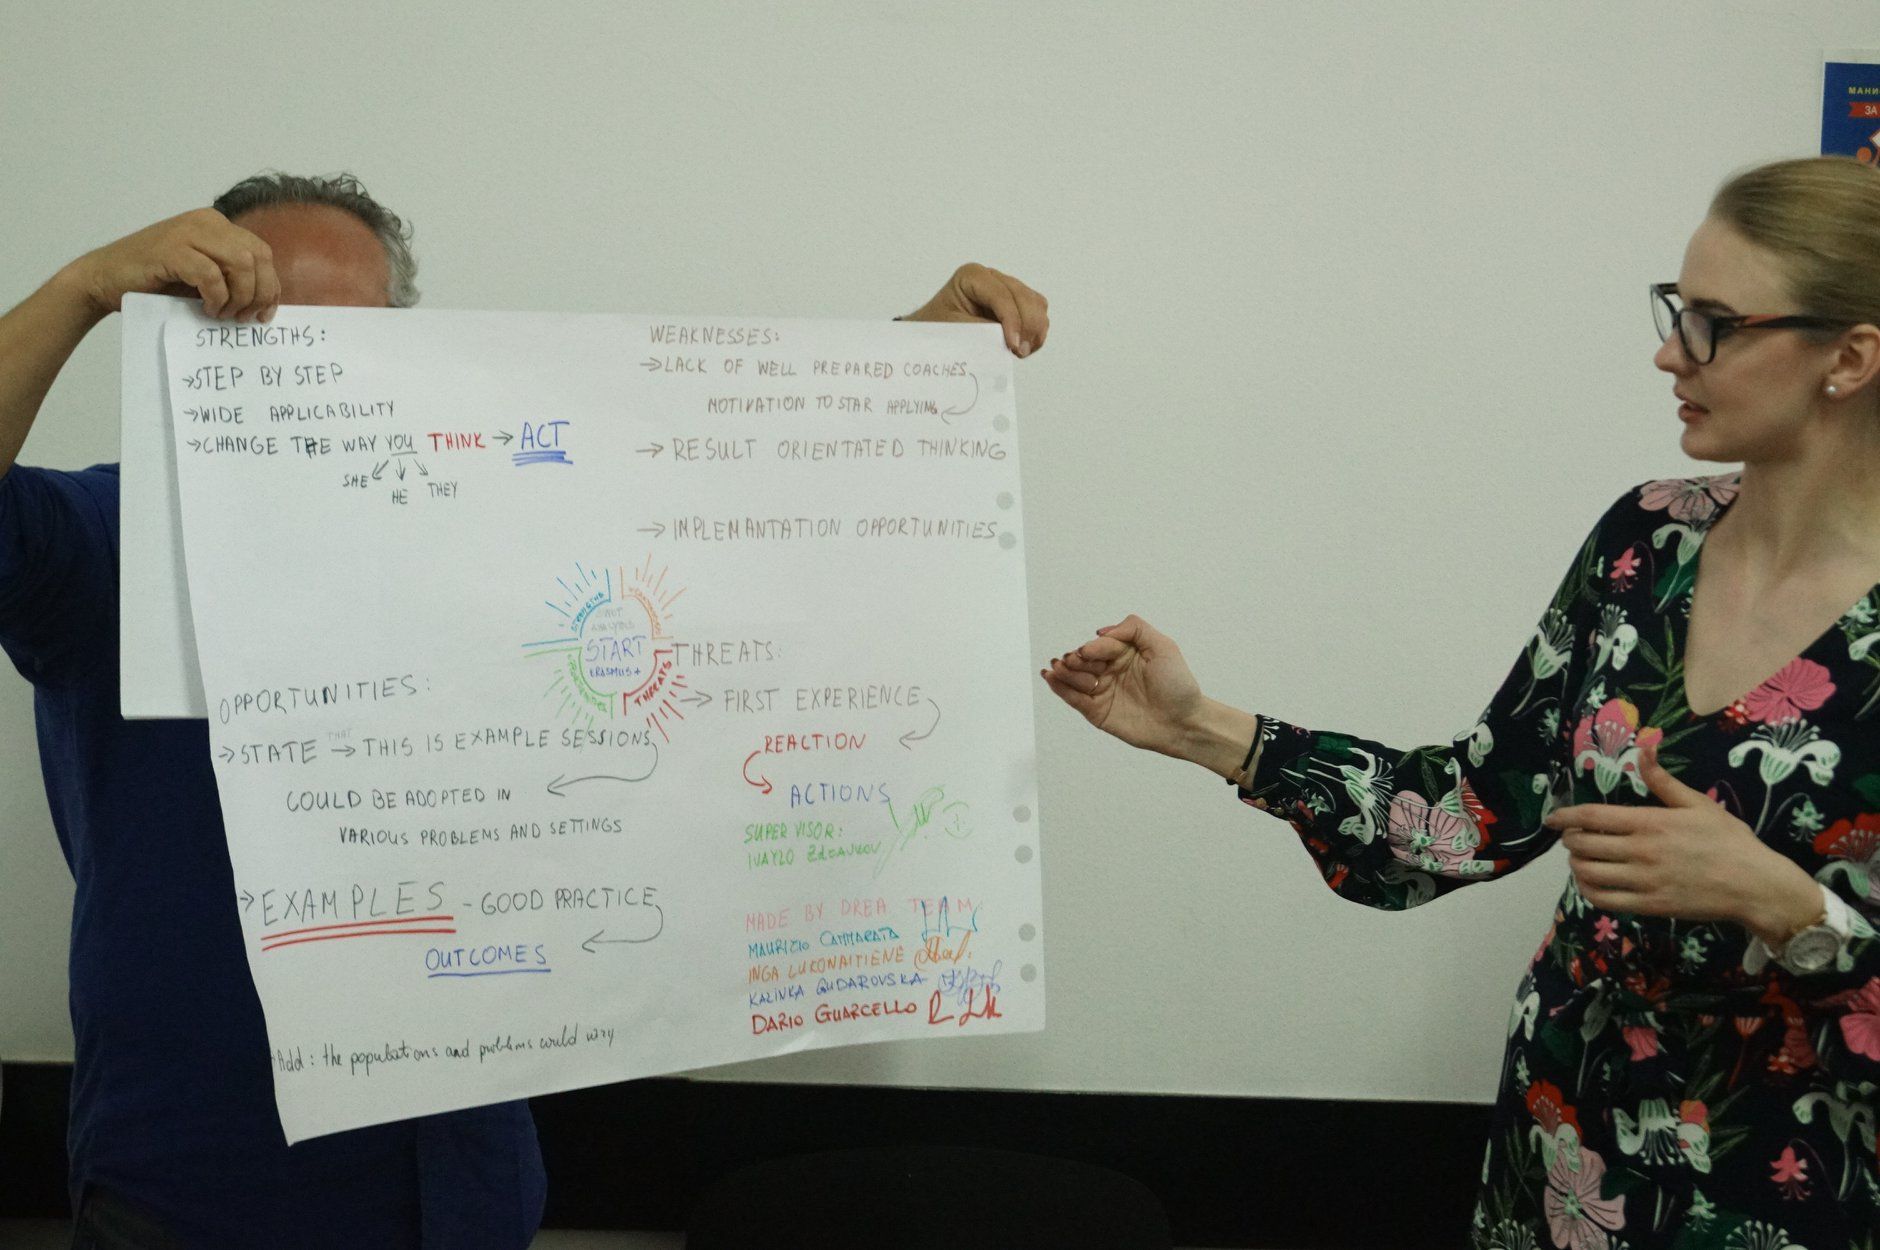 STRENGTHS:
→STEP BY STEP
→WIDE APPLICABILITY
→CHANGE THE WAY YOU THINK → ACT
SHE HE THEY
WEAKNESSES:
→LACK OF WELL PREPARED COACHES
MOTIVATION TO STAR APPLYING
→ RESULT ORIENTATED THINKING
→ IMPLEMANTATION OPPORTUNITIES
STRENGTHS
WEAKNESSES
SWOT
ANALYSIS
START
ERASMUS+
OPPORTUNITIES
THREATS
OPPORTUNITIES:
THAT
→STATE → THIS IS EXAMPLE SESSIONS
COULD BE ADOPTED IN
VARIOUS PROBLEMS AND SETTINGS
→ EXAMPLES - GOOD PRACTICE
OUTCOMES
Add: the populations and problems could vary
THREATS:
→ FIRST EXPERIENCE
REACTION
ACTIONS
SUPERVISOR:
IVAYLO ZdRAVKOV
MADE BY DREA TEAM
MAURIZIO CAMMARATA
INGA LUKONAITIENE
KALINKA GUDAROVSKA
DARIO GUARCELLO
МАНИ
ЗА